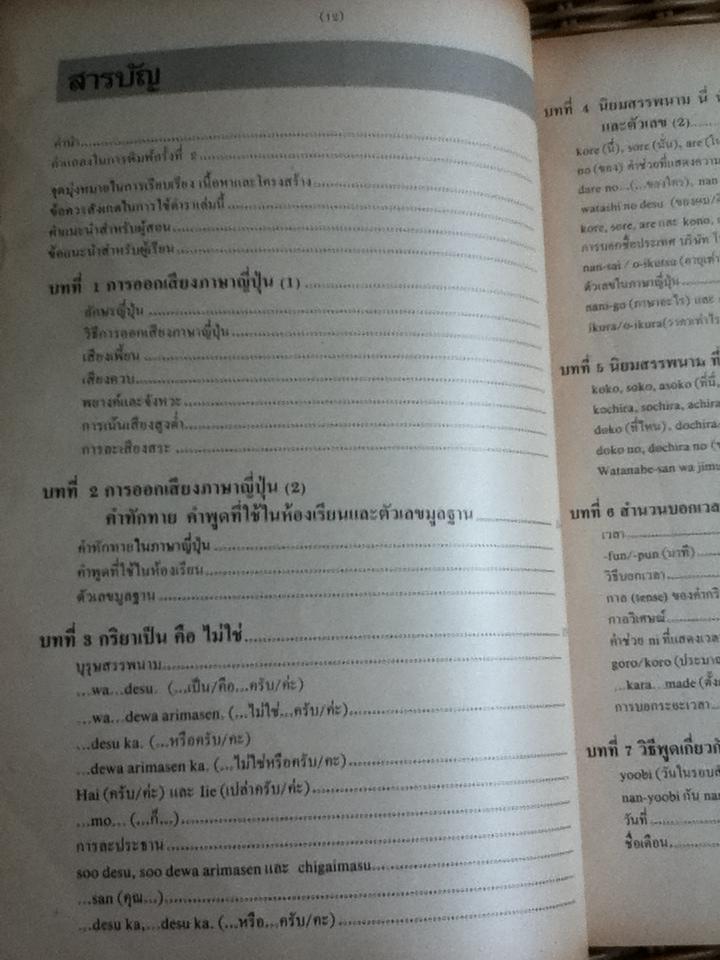 (12)
สารบัญ
คำนำ
คำแถลงในการพิมพ์ครั้งที่ 2
จุดมุ่งหมายในการเรียบเรียง เนื้อหาและโครงสร้าง
ข้อควรสังเกตในการใช้ตำราเล่มนี้
คำแนะนำสำหรับผู้สอน
ข้อแนะนำสำหรับผู้เรียน
บทที่ 1 การออกเสียงภาษาญี่ปุ่น (1)
อักษรญี่ปุ่น
วิธีการออกเสียงภาษาญี่ปุ่น
เสียงเพี้ยน
เสียงควบ
พยางค์และจังหวะ
การเน้นเสียงสูงต่ำ
การละเสียงสระ
บทที่ 2 การออกเสียงภาษาญี่ปุ่น (2)
คำทักทาย คำพูดที่ใช้ในห้องเรียนและตัวเลขมูลฐาน
คำทักทายในภาษาญี่ปุ่น
คำพูดที่ใช้ในห้องเรียน
ตัวเลขมูลฐาน
บทที่ 3 กริยาเป็น คือ ไม่ใช่
บุรุษสรรพนาม
...wa...desu. (...เป็น/คือ...ครับ/ค่ะ)
...wa...dewa arimasen. (...ไม่ใช่...ครับ/ค่ะ)
...desu ka. (...หรือครับ/คะ)
...dewa arimasen ka. (...ไม่ใช่หรือครับ/คะ)
Hai (ครับ/ค่ะ) และ Iie (เปล่าครับ/ค่ะ)
...mo... (...ก็...)
การละประธาน
soo desu, soo dewa arimasen และ chigaimasu
...san (คุณ...)
...desu ka,...desu ka. (...หรือ...ครับ/คะ)
บทที่ 4 นิยมสรรพนาม นี่
และตัวเลข (2)
kore (นี่), sore (นั่น), are
no (ของ) คำช่วยที่แสดงความ
dare no...(...ของใคร), nan
watashi no desu (ของผม/
kore, sore, are และ kono,
การบอกชื่อประเทศ บริษัท
nan-sai / o-ikutsu (อายุเท่า
ตัวเลขในภาษาญี่ปุ่น
nani-go (ภาษาอะไร) และ
ikura/o-ikura(ราคาเท่าไร
บทที่ 5 นิยมสรรพนาม ที่
koko, soko, asoko (ที่นี่,
kochira, sochira, achira
doko (ที่ไหน), dochira
doko no, dochira no
Watanabe-san wa jimu
บทที่ 6 สำนวนบอกเวลา
เวลา
-fun/-pun (นาที)
วิธีบอกเวลา
กาล (tense) ของคำกริ
กาลวิเศษณ์
คำช่วย ni ที่แสดงเวลา
goro/koro (ประมาณ
...kara...made (ตั้งแ
การบอกระยะเวลา
บทที่ 7 วิธีพูดเกี่ยวกั
yoobi (วันในรอบสั
nan-yoobi กับ nan
วันที่
ชื่อเดือน